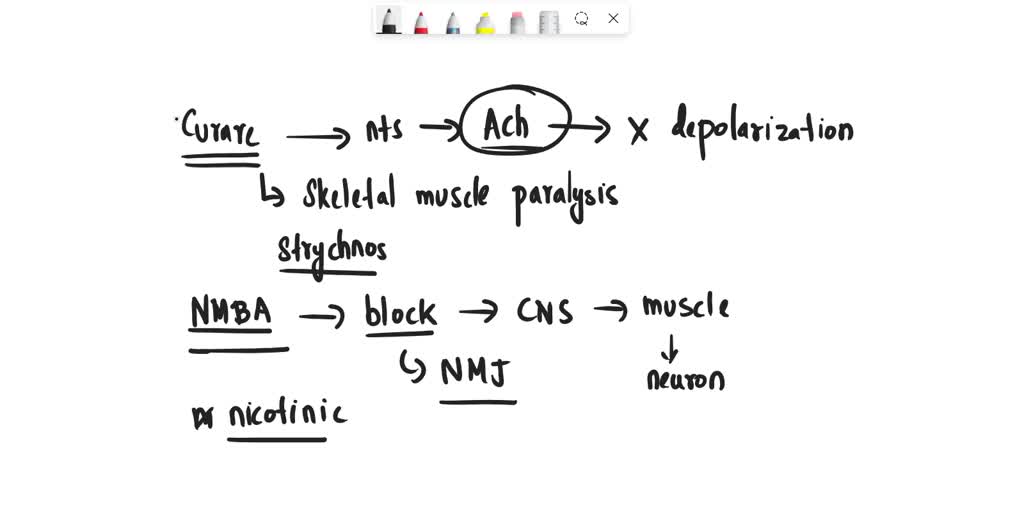 Curare → nts → Ach → x depolarization
↳ Skeletal muscle paralysis
Strychnos
NMBA → block → CNS → muscle
↳ NMJ ↓
neuron
nicotinic